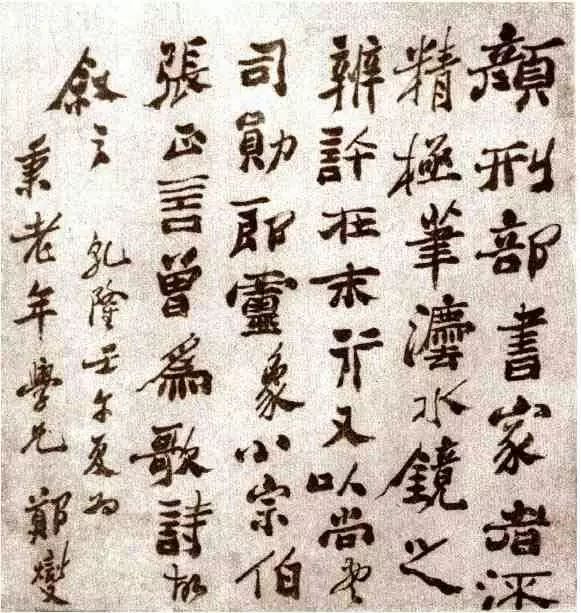 顏刑部書家者流
精極筆灋水鏡之
辨許在末行又以尚書
司勛郎靈象小宗伯
張正言曾爲歌詩故
敘之 乾隆壬午夏为
秉老年學兄 鄭燮